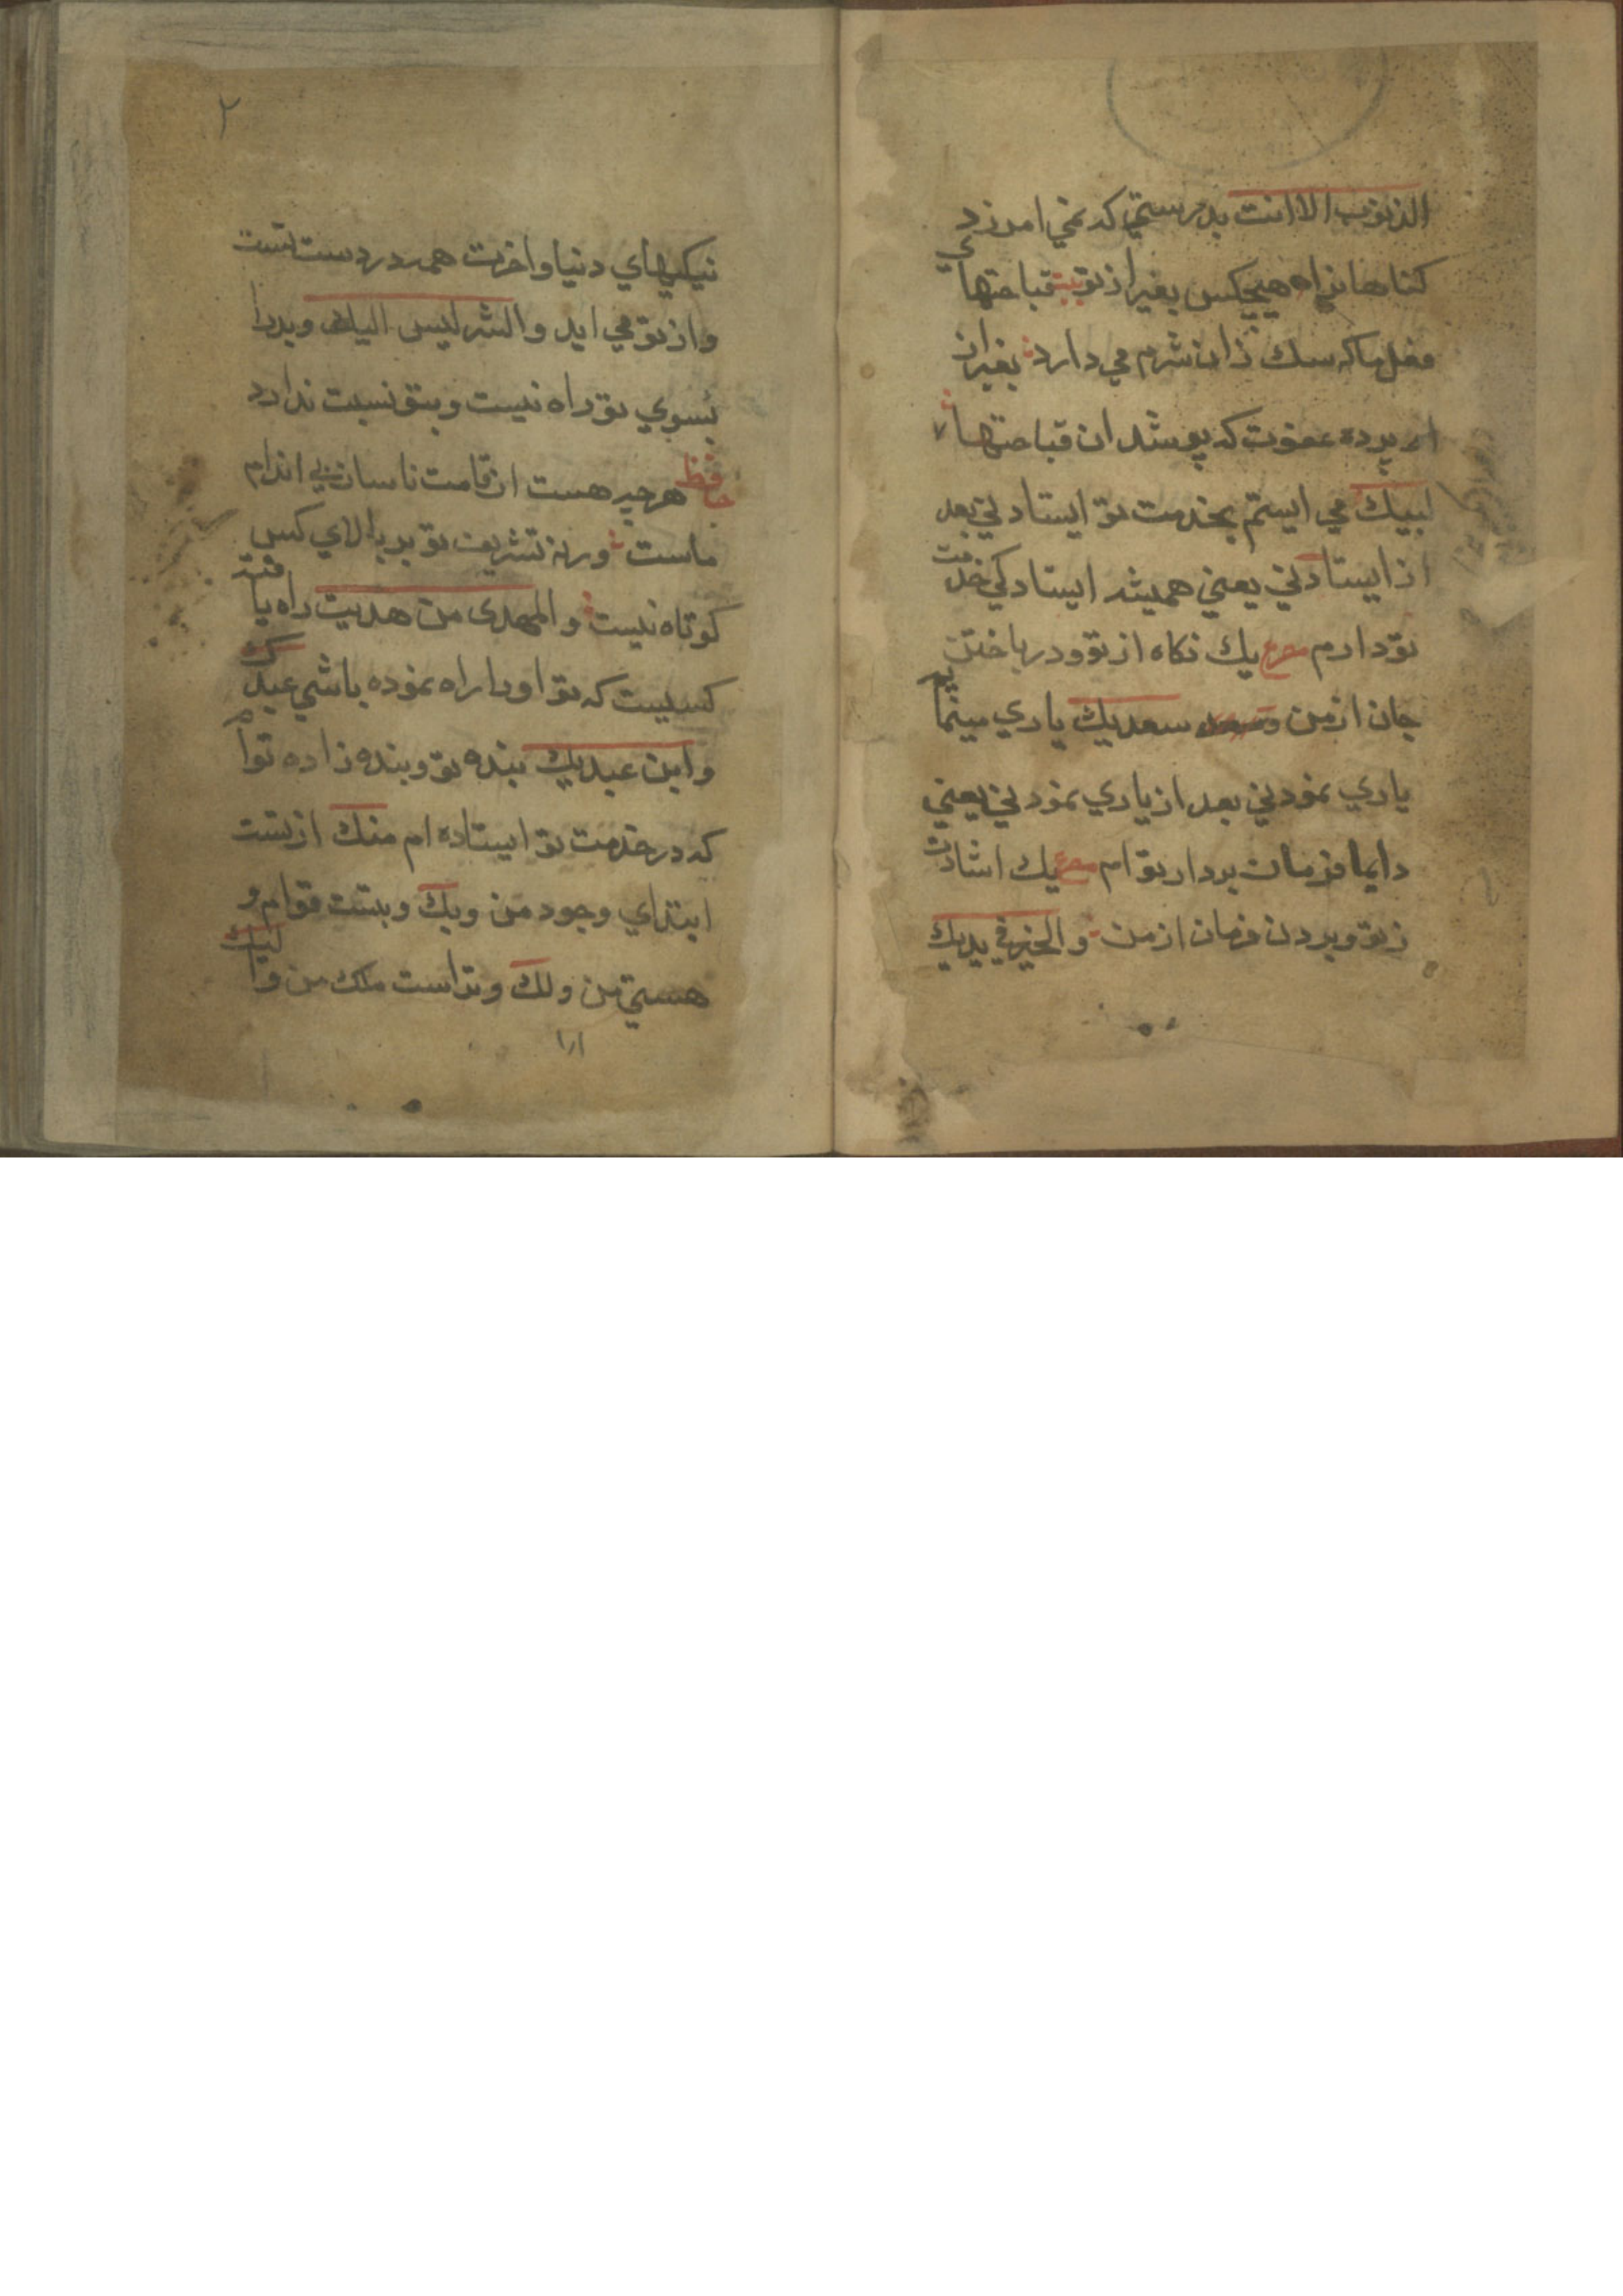 الذنوب الا انت بدرستي که نمي امرزد
کناهانرا هیچکس بغیر از تو بیت قباحتهاي
فعل ما که سك زان شرم مي دارد بغیر از
پرده عفوت که پوشد ان قباحتها
لبیك مي ایستم بخدمت تو ایستادني بعد
از ایستادني یعني همیشه ایستادکي خدمت
تو دارم مصرع یك نکاه از تو و در باختن
جان از من و سعدیك یاري مینمایم
یاري نمودني بعد از یاري نمودني یعني
دایما فرمان بردار تو ام مصرع یك اشارت
ز تو و بردن فرمان از من والخیر في یدیك
۲
نیکیهاي دنیا و اخرت همه در دست تست
و از تو مي اید والشر لیس الیك و بد را
بسوي تو راه نیست و بتو نسبت ندارد
حافظ هر چه هست از قامت ناساز بي اندام
ماست ورنه تشریف تو بر بالاي کس
کوتاه نیست والمهدی من هدیت راه یافته
کسیست که تو او را راه نموده باشي عبدك
وابن عبدیك بنده تو و بنده زاده توام
که در خدمت تو ایستاده ام منك از تست
ابتداي وجود من وبك و بتست قوام و
هستي من ولك و تراست ملك من والیك